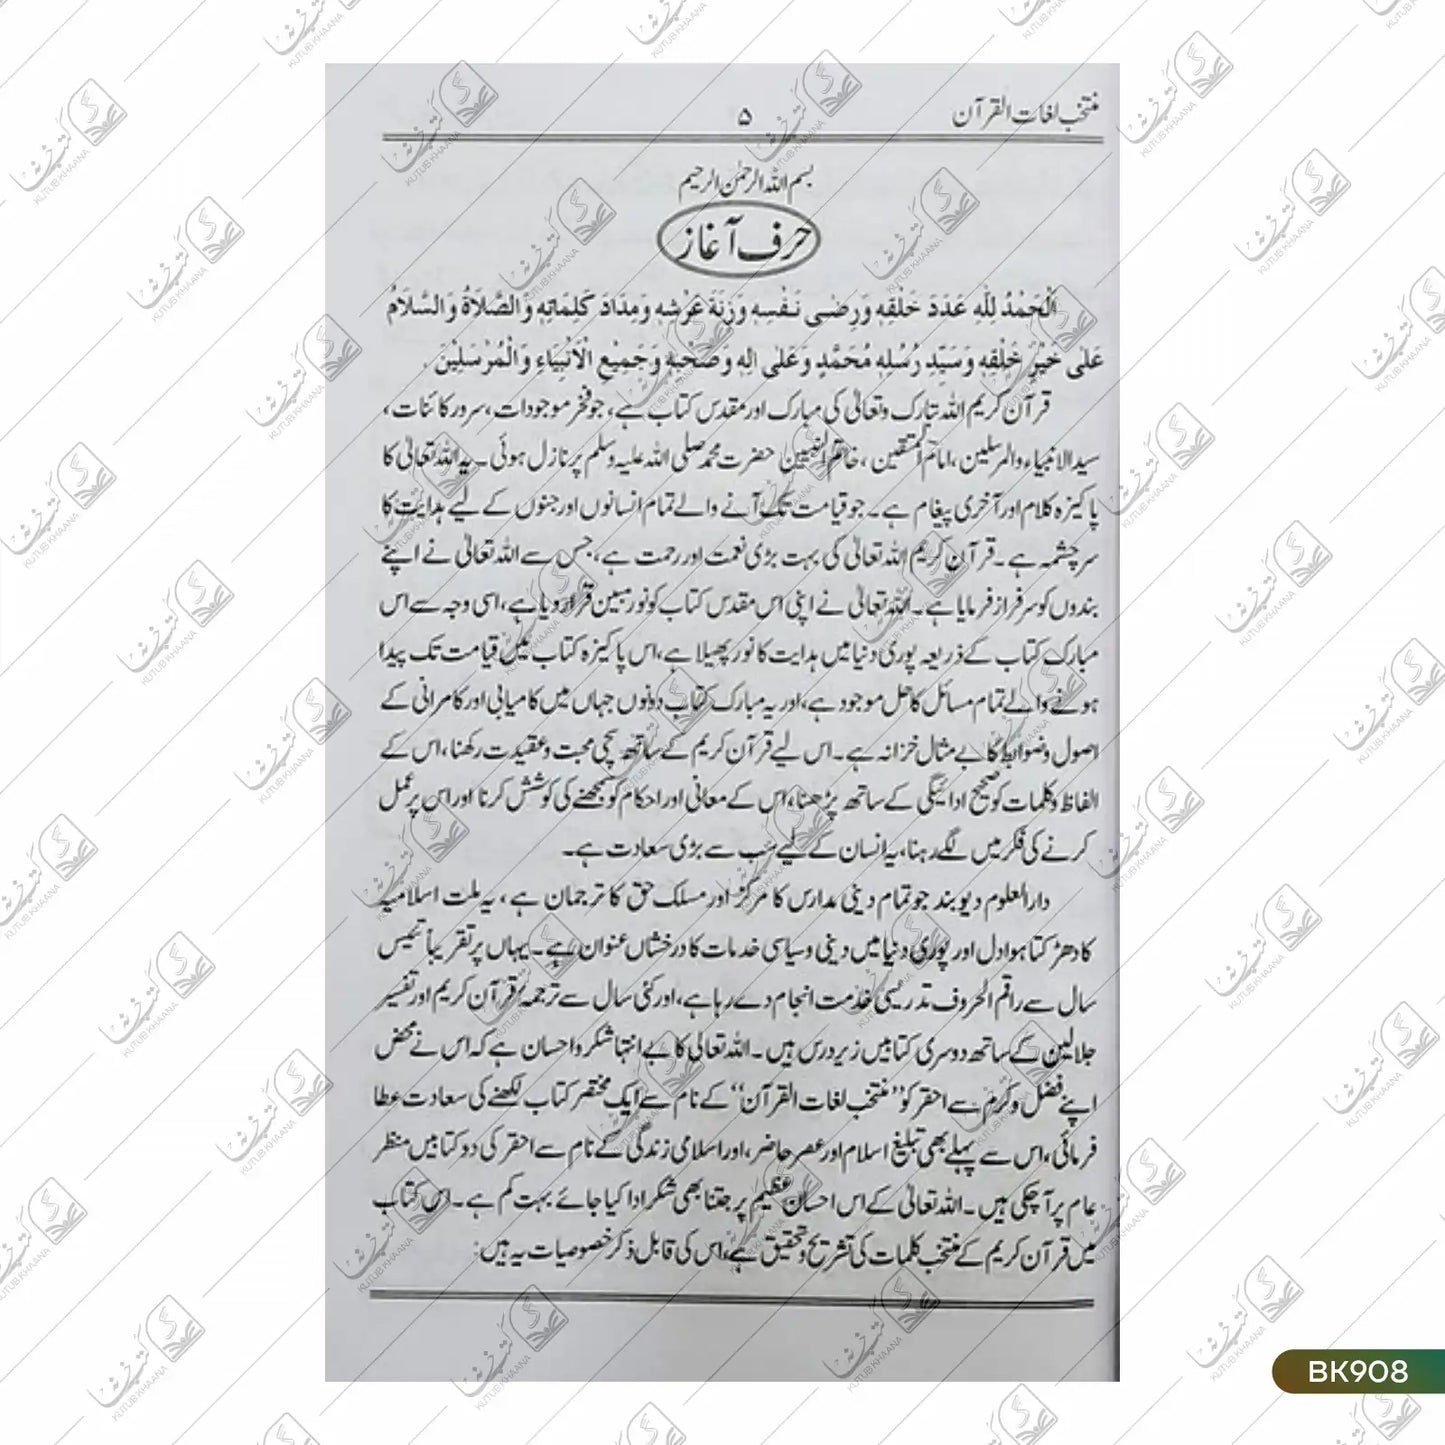 منتخب لغات القرآن
۵
بسم اللہ الرحمٰن الرحیم
حرف آغاز
اَلْحَمْدُ لِلّٰهِ عَدَدَ خَلْقِهٖ وَرِضٰى نَفْسِهٖ وَزِنَةَ عَرْشِهٖ وَمِدَادَ كَلِمَاتِهٖ وَالصَّلَاةُ وَالسَّلَامُ
عَلٰى خَيْرِ خَلْقِهٖ وَسَيِّدِ رُسُلِهٖ مُحَمَّدٍ وَعَلٰى اٰلِهٖ وَصَحْبِهٖ وَجَمِيْعِ الْاَنْبِيَاءِ وَالْمُرْسَلِيْنَ.
قرآن کریم اللہ تبارک وتعالیٰ کی مبارک اور مقدس کتاب ہے، جو فخر موجودات، سرور کائنات،
سید الانبیاء والمرسلین، امام المتقین، خاتم النبیین حضرت محمد صلی اللہ علیہ وسلم پر نازل ہوئی۔ یہ اللہ تعالیٰ کا
پاکیزہ کلام اور آخری پیغام ہے۔ جو قیامت تک آنے والے تمام انسانوں اور جنوں کے لیے ہدایت کا
سرچشمہ ہے۔ قرآن کریم اللہ تعالیٰ کی بہت بڑی نعمت اور رحمت ہے، جس سے اللہ تعالیٰ نے اپنے
بندوں کو سرفراز فرمایا ہے۔ اللہ تعالیٰ نے اپنی اس مقدس کتاب کو نور مبین قرار دیا ہے، اسی وجہ سے اس
مبارک کتاب کے ذریعہ پوری دنیا میں ہدایت کا نور پھیلا ہے، اس پاکیزہ کتاب میں قیامت تک پیدا
ہونے والے تمام مسائل کا حل موجود ہے، اور یہ مبارک کتاب دونوں جہاں میں کامیابی اور کامرانی کے
اصول وضوابط کا بے مثال خزانہ ہے۔ اس لیے قرآن کریم کے ساتھ سچی محبت وعقیدت رکھنا، اس کے
الفاظ وکلمات کو صحیح ادائیگی کے ساتھ پڑھنا، اس کے معانی اور احکام کو سمجھنے کی کوشش کرنا اور اس پر عمل
کرنے کی فکر میں لگے رہنا، یہ انسان کے لیے سب سے بڑی سعادت ہے۔
دارالعلوم دیوبند جو تمام دینی مدارس کا مرکز اور مسلک حق کا ترجمان ہے، یہ ملت اسلامیہ
کا دھڑکتا ہوا دل اور پوری دنیا میں دینی وسیاسی خدمات کا درخشاں عنوان ہے۔ یہاں پر تقریباً تیس
سال سے راقم الحروف تدریسی خدمت انجام دے رہا ہے، اور کئی سال سے ترجمۂ قرآن کریم اور تفسیر
جلالین کے ساتھ دوسری کتابیں زیر درس ہیں۔ اللہ تعالیٰ کا بے انتہا شکر و احسان ہے کہ اس نے محض
اپنے فضل وکرم سے احقر کو ”منتخب لغات القرآن“ کے نام سے ایک مختصر کتاب لکھنے کی سعادت عطا
فرمائی، اس سے پہلے بھی تبلیغ اسلام اور عصر حاضر، اور اسلامی زندگی کے نام سے احقر کی دو کتابیں منظر
عام پر آچکی ہیں۔ اللہ تعالیٰ کے اس احسان عظیم پر جتنا بھی شکر ادا کیا جائے بہت کم ہے۔ اس کتاب
میں قرآن کریم کے منتخب کلمات کی تشریح و تحقیق ہے، اس کی قابل ذکر خصوصیات یہ ہیں:
KUTUB KHAANA
BK908